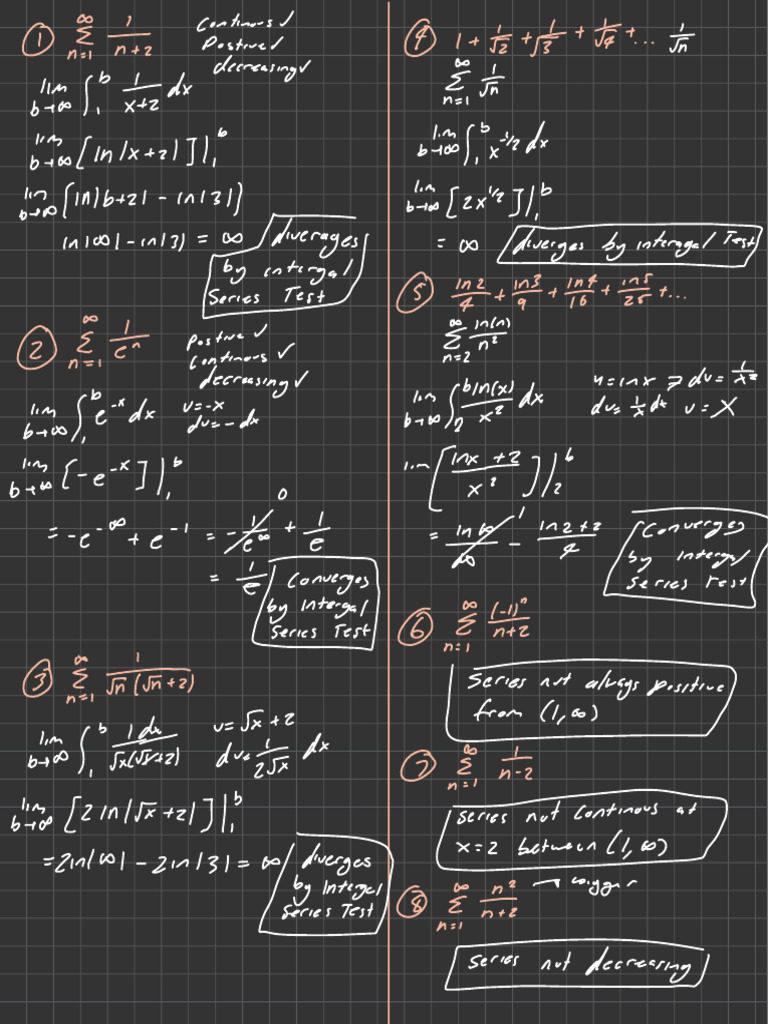 ① ∞ Σ n=1 1/(n+2)
Continous ✓
Postive ✓
decreasing ✓
lim b→∞ ∫₁ᵇ 1/(x+2) dx
lim b→∞ [ln|x+2|]|₁ᵇ
lim b→∞ [ln|b+2| - ln|3|]
ln|∞| - ln|3| = ∞
diverages
by intergal
Series Test
② ∞ Σ n=1 1/eⁿ
Postive ✓
Continous ✓
decreasing ✓
lim b→∞ ∫₁ᵇ e^-x dx
u=-x
du=-dx
lim b→∞ [-e^-x]|₁ᵇ
= -e^-∞ + e^-1 = -1/e^∞ 0 + 1/e
= 1/e
Converges
by Intergal
Series Test
③ ∞ Σ n=1 1/(√n (√n+2))
lim b→∞ ∫₁ᵇ 1 dx/(√x(√x+2))
u=√x+2
du=1/(2√x) dx
lim b→∞ [2 ln|√x+2|]|₁ᵇ
=2ln|∞| - 2ln|3| = ∞
diverges
by Intergal
Series Test
④ 1 + 1/√2 + 1/√3 + 1/√4 + ... 1/√n
∞ Σ n=1 1/√n
lim b→∞ ∫₁ᵇ x^-1/2 dx
lim b→∞ [2x^1/2]|₁ᵇ
= ∞
diverges by intergal Test
⑤ ln2/4 + ln3/9 + ln4/16 + ln5/25 + ...
∞ Σ n=2 ln(n)/n²
lim b→∞ ∫₂ᵇ ln(x)/x² dx
u=lnx → dv=1/x²
du=1/x dx v=
lim [(lnx+2)/x²]|₂ᵇ
= ln∞/∞ 1 - (ln2+2)/4
Converges
by Intergal
Series test
⑥ ∞ Σ n=1 (-1)ⁿ/(n+2)
Series not always positive
from (1,∞)
⑦ ∞ Σ n=1 1/(n-2)
Series not continous at
x=2 between (1,∞)
⑧ ∞ Σ n=1 n²/(n+2)
→ bigger
Series not decreasing